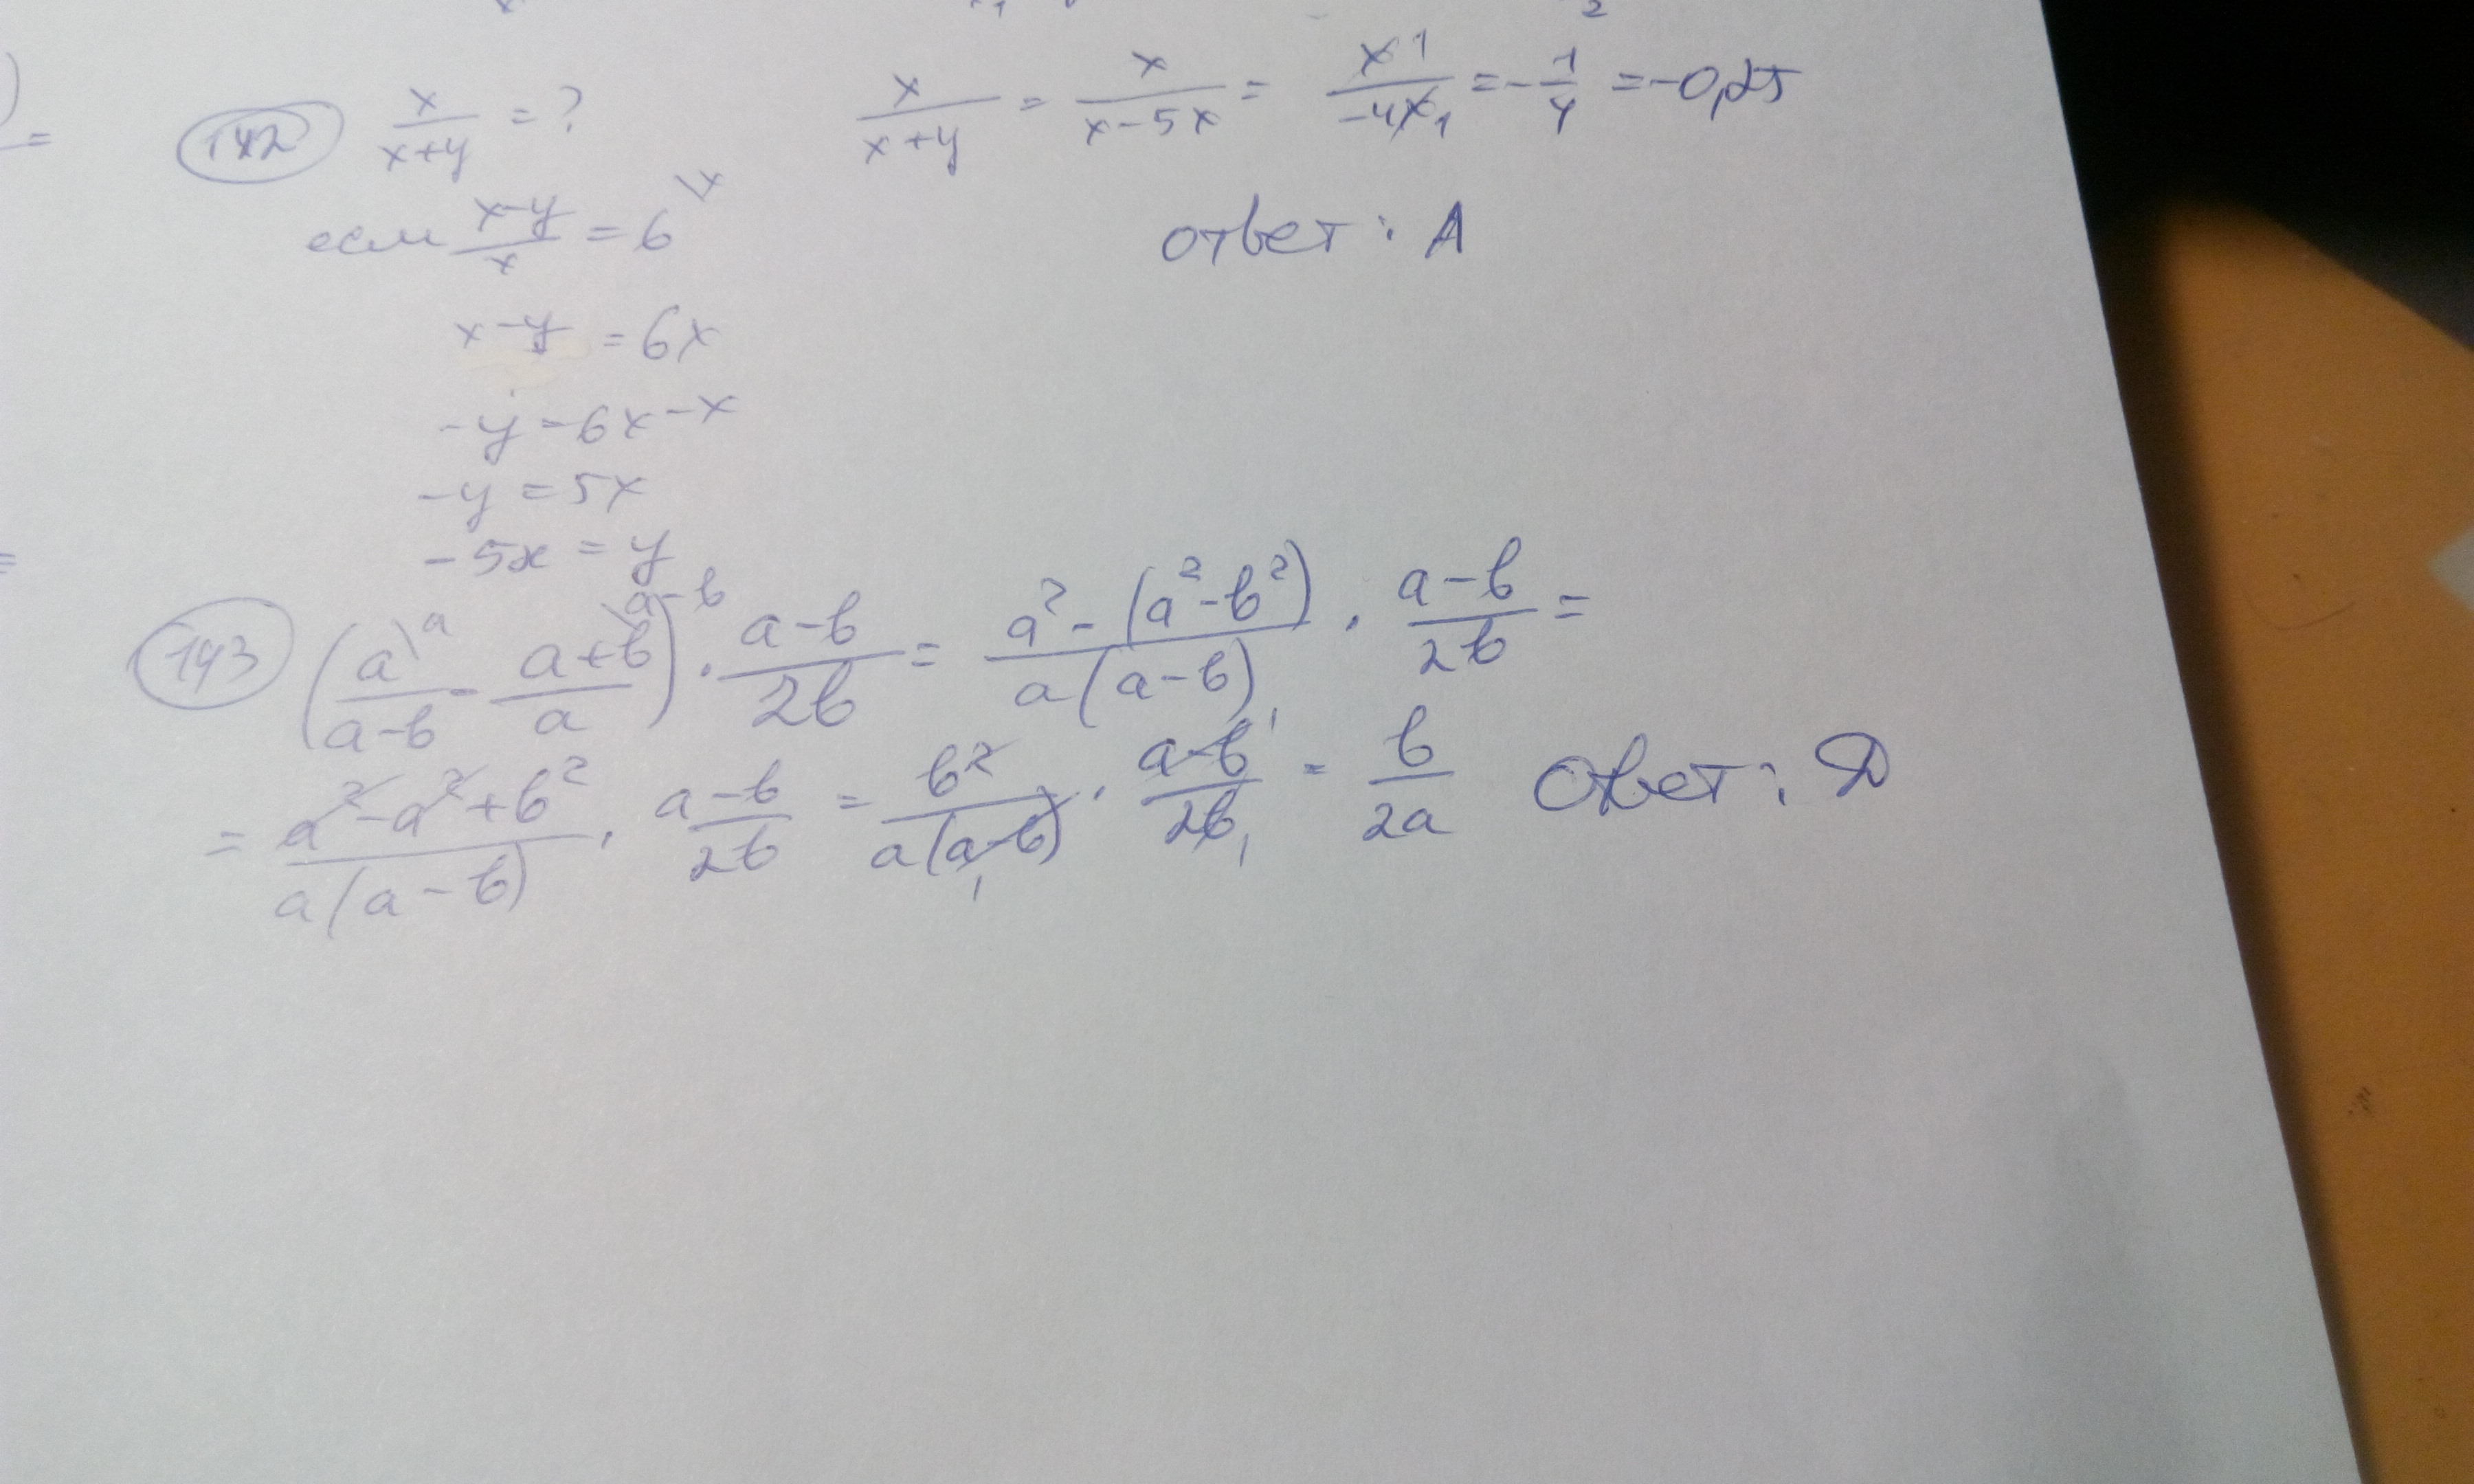 142 x/(x+y) = ?
если (x-y)/x = 6 \x
x-y = 6x
-y = 6x-x
-y = 5x
-5x = y
x/(x+y) = x/(x-5x) = x 1/(-4x 1) = -1/4 = -0,25
ответ: А
143 (a/(a-b) \a - (a+b)/a \a-b) · (a-b)/2b = (a²-(a²-b²))/(a(a-b)) · (a-b)/2b =
= (a²-a²+b²)/(a(a-b)) · (a-b)/2b = b²/(a(a-b) 1) · (a-b) 1/(2b 1) = b/2a Ответ: Д